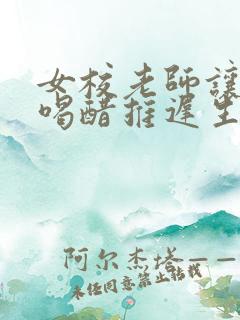 女校老師讓
喝醋推遲生
阿尔杰塔——
未经同意禁止转载